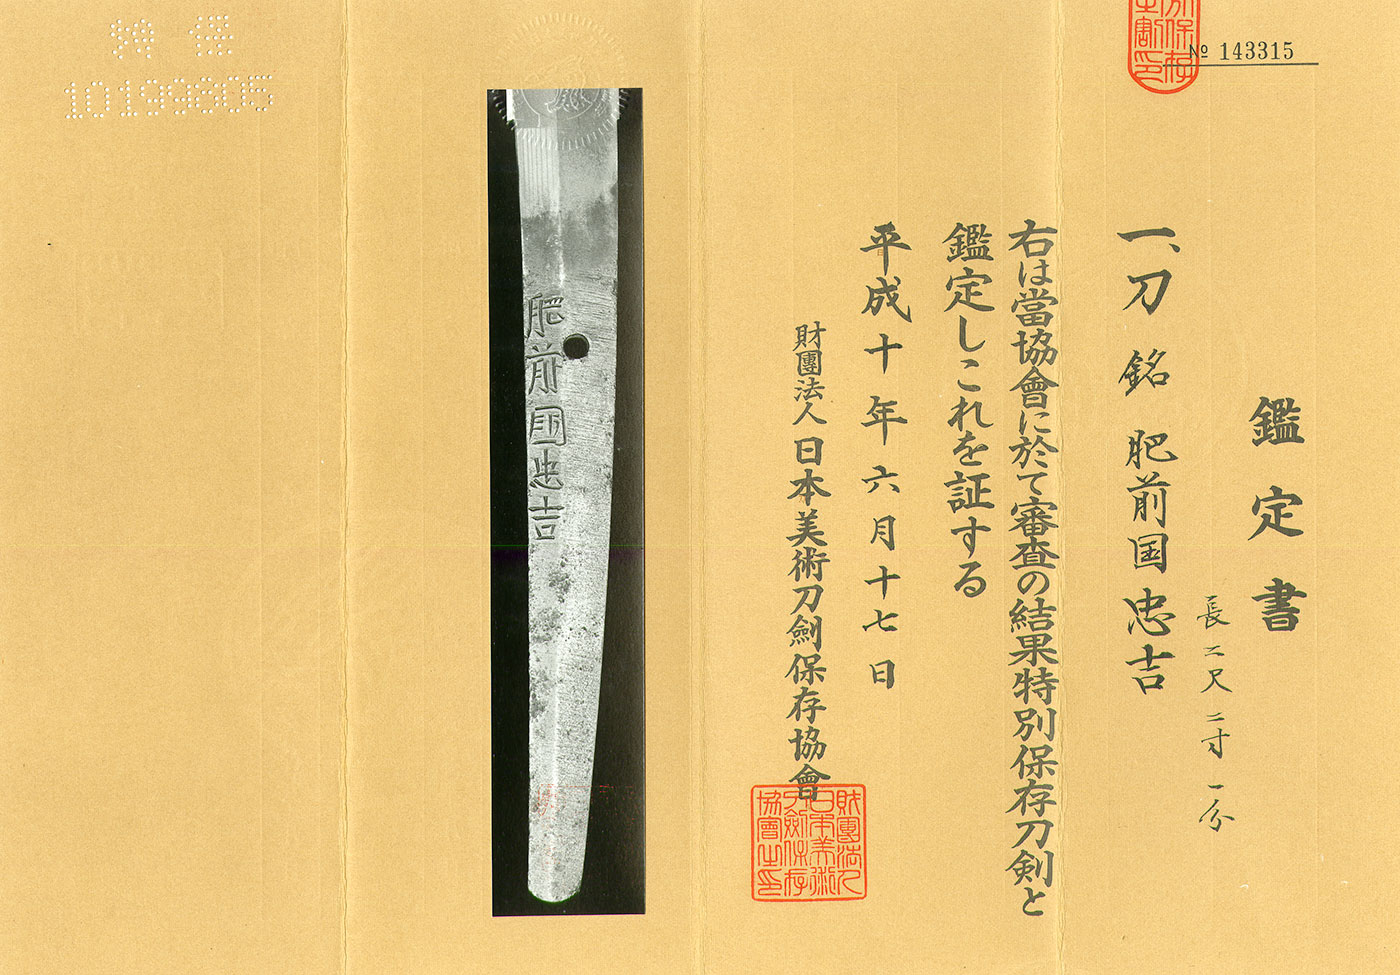 № 143315
鑑定書
一、刀 銘 肥前国忠吉
長二尺二寸一分
右は當協會に於て審査の結果特別保存刀剣と
鑑定しこれを証する
平成十年六月十七日
財團法人日本美術刀劍保存協會
財團法人
日本美術
刀劍保存
協會之印
肥前國忠吉
10199805